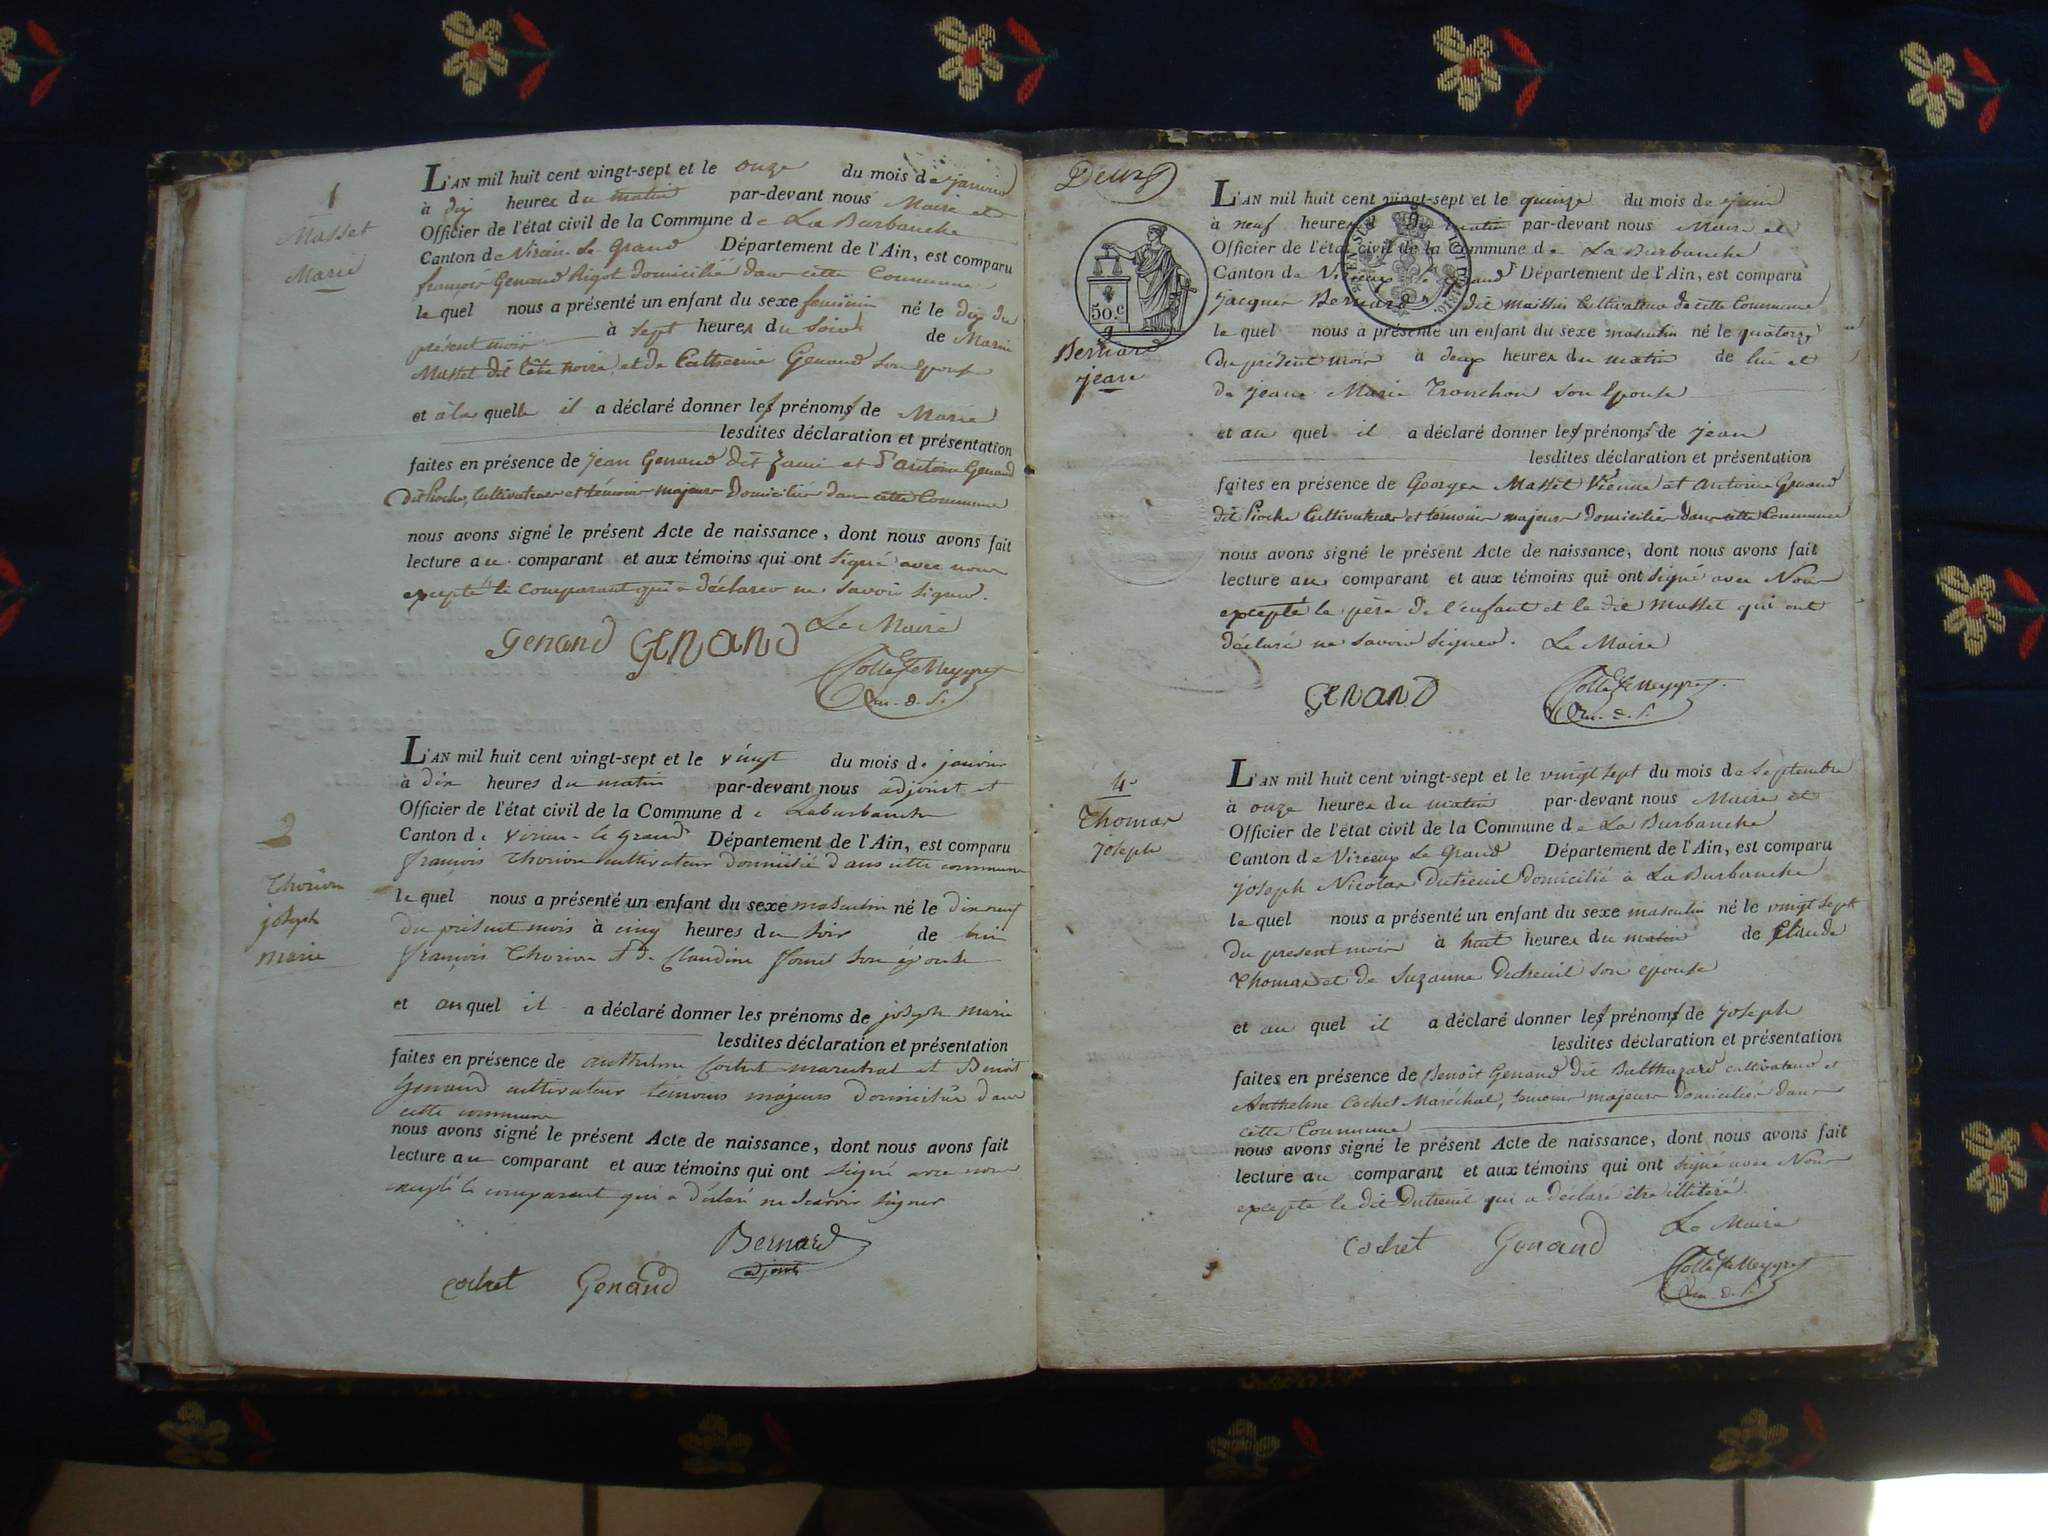 1
Masset
Marie
L'AN mil huit cent vingt-sept et le onze du mois de janvier
à dix heures du matin par-devant nous Maire et
Officier de l'état civil de la Commune de La Burbanche
Canton de Virieu-le-grand Département de l'Ain, est comparu
françois Genand Rigot domicilié dans cette Commune
lequel nous a présenté un enfant du sexe feminin né le dix du
présent mois à sept heures du soir de Marin
Masset dit tête noire, et de Catherine Genand son Epouse
et à la quelle il a déclaré donner les prénoms de Marie
lesdites déclaration et présentation
faites en présence de jean Genand dit et d'antoine Genand
dit Pioche, Cultivateurs et témoins majeurs Domiciliés dans cette Commune
nous avons signé le présent Acte de naissance, dont nous avons fait
lecture au comparant et aux témoins qui ont signé avec nous
excepté le comparant qui a déclaré ne savoir signer.
Le Maire
Genand GENAND
2
Thorion
joseph
marie
L'AN mil huit cent vingt-sept et le vingt du mois de janvier
à dix heures du matin par-devant nous adjoint et
Officier de l'état civil de la Commune de Laburbanche
Canton de virieu-le grand Département de l'Ain, est comparu
françois Thorion cultivateur domicilié dans cette commune
lequel nous a présenté un enfant du sexe masculin né le dix neuf
du présent mois à cinq heures du soir de lui
françois Thorion et de Claudine son épouse
et au quel il a déclaré donner les prénoms de joseph marie
lesdites déclaration et présentation
faites en présence de anthelme Cochet marechal et Benoit
Genand cultivateur témoins majeurs domiciliés dans
cette commune
nous avons signé le présent Acte de naissance, dont nous avons fait
lecture au comparant et aux témoins qui ont signé avec nous
excepté le comparant qui a déclaré ne scavoir signer
Bernard
adjoint
cochet Genand
Deux
50 c
3
Bernard
jean
L'AN mil huit cent vingt-sept et le quinze du mois de juin
à neuf heures du matin par-devant nous Maire et
Officier de l'état civil de la Commune de La Burbanche
Canton de Virieux le Grand Département de l'Ain, est comparu
jacques Bernard dit maissin Cultivateur de cette Commune
lequel nous a présenté un enfant du sexe masculin né le quatorze
du présent mois à deux heures du matin de lui et
de jeane Marie Tronchon son Epouse
et au quel il a déclaré donner les prénoms de jean
lesdites déclaration et présentation
faites en présence de Georges Masset Vienne et antoine Genand
dit Pioche Cultivateurs et témoins majeurs domiciliés dans cette Commune
nous avons signé le présent Acte de naissance, dont nous avons fait
lecture au comparant et aux témoins qui ont signé avec Nous
excepté le père de l'enfant et le dit Masset qui ont
déclaré ne savoir signer. Le Maire
GENAND
4
Thomas
joseph
L'AN mil huit cent vingt-sept et le vingt sept du mois de Septembre
à onze heures du matin par-devant nous Maire et
Officier de l'état civil de la Commune de La Burbanche
Canton de Virieux Le Grand Département de l'Ain, est comparu
joseph Nicolas Dutreuil domicilié à La Burbanche
lequel nous a présenté un enfant du sexe masculin né le vingt sept
du present mois à huit heures du matin de Claude
Thomas et de Suzanne Dutreuil son epouse
et au quel il a déclaré donner les prénoms de joseph
lesdites déclaration et présentation
faites en présence de Benoît Genand dit Balthazard cultivateur et
Anthelme Cochet Maréchal, temoins majeurs domiciliés dans
cette Commune
nous avons signé le présent Acte de naissance, dont nous avons fait
lecture au comparant et aux témoins qui ont signé avec Nous
excepté le dit Dutreuil qui a déclaré être illitéré.
Le Maire
cochet Genand